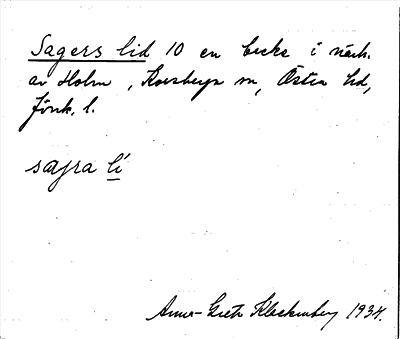 Sagers lid 10 en backe i närh.
av Holm, Korsberga sn, Östra hd,
Jönk. l.
sagra lí
Anna-Greta Klackenberg 1934.